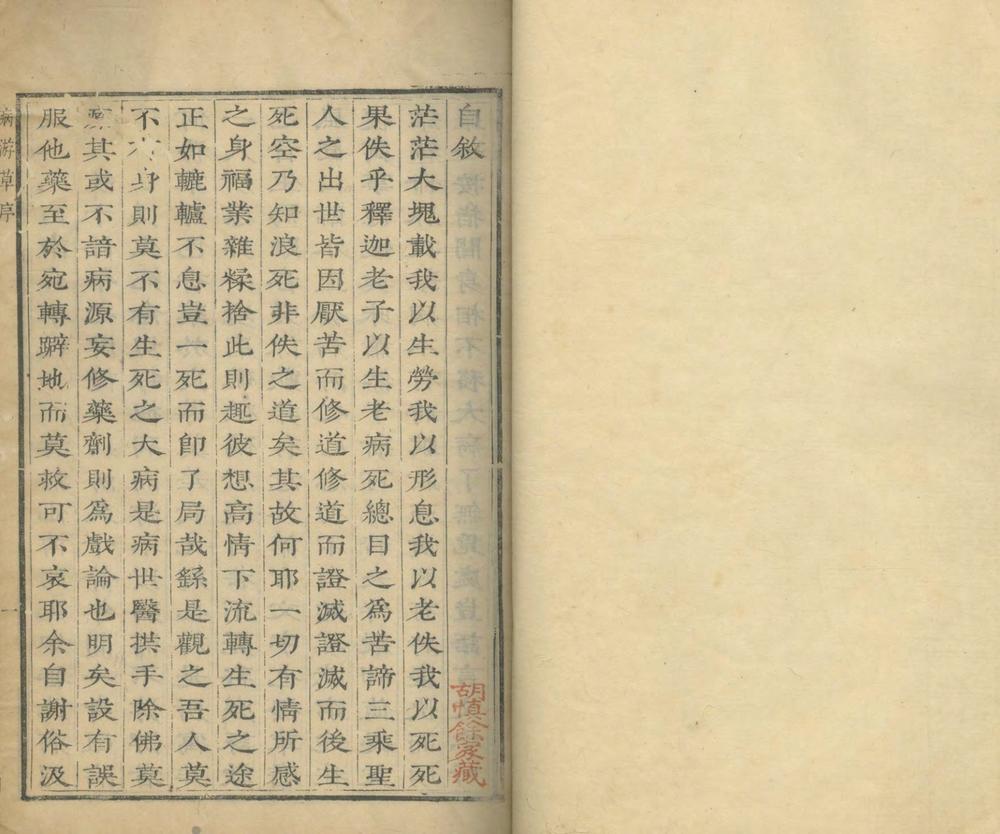 自敘
茫茫大塊載我以生勞我以形息我以老佚我以死死
果佚乎釋迦老子以生老病死總目之爲苦諦三乘聖
人之出世皆因厭苦而修道修道而證滅證滅而後生
死空乃知浪死非佚之道矣其故何耶一切有情所感
之身福業雜糅捨此則趣彼想高情下流轉生死之途
正如轆轤不息豈一死而卽了局哉繇是觀之吾人莫
不身則莫不有生死之大病是病世醫拱手除佛莫
其或不諳病源妄修藥劑則爲戲論也明矣設有誤
服他藥至於宛轉躃地而莫救可不哀耶余自謝俗汲
病游草序
一
胡慎餘家藏